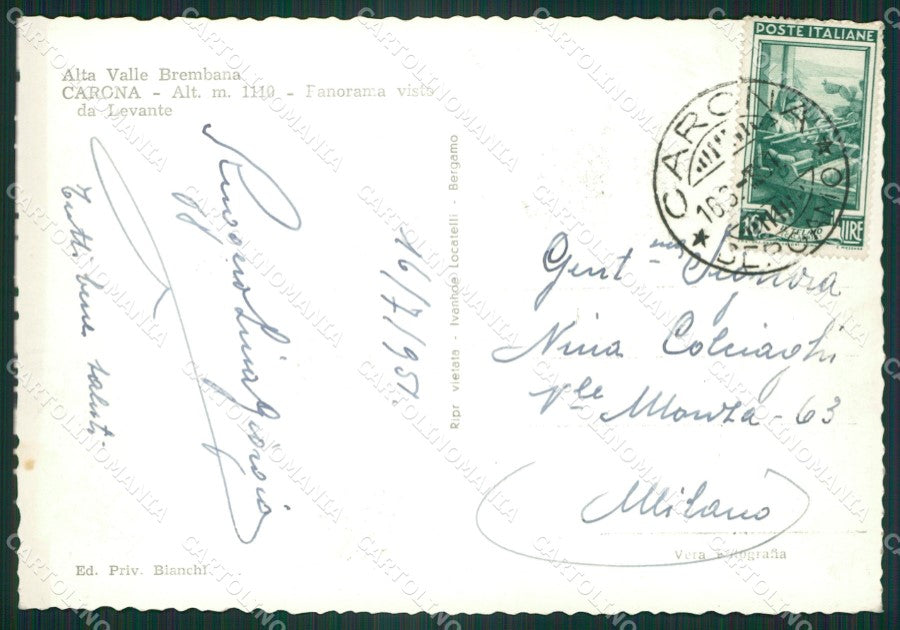 Alta Valle Brembana
CARONA - Alt. m. 1110 - Panorama visto
da Levante
Tutti bene saluti
Ruggero Lina Giorgio
16/7/951.
Ripr vietata - Ivanhoe Locatelli - Bergamo
POSTE ITALIANE
LIRE
CARONA
BERGAMO
Gent ma Signora
Nina Colciaghi
Vle Monza - 63
Milano
Vera Fotografia
Ed. Priv. Bianchi
CARTOLINOMANIA